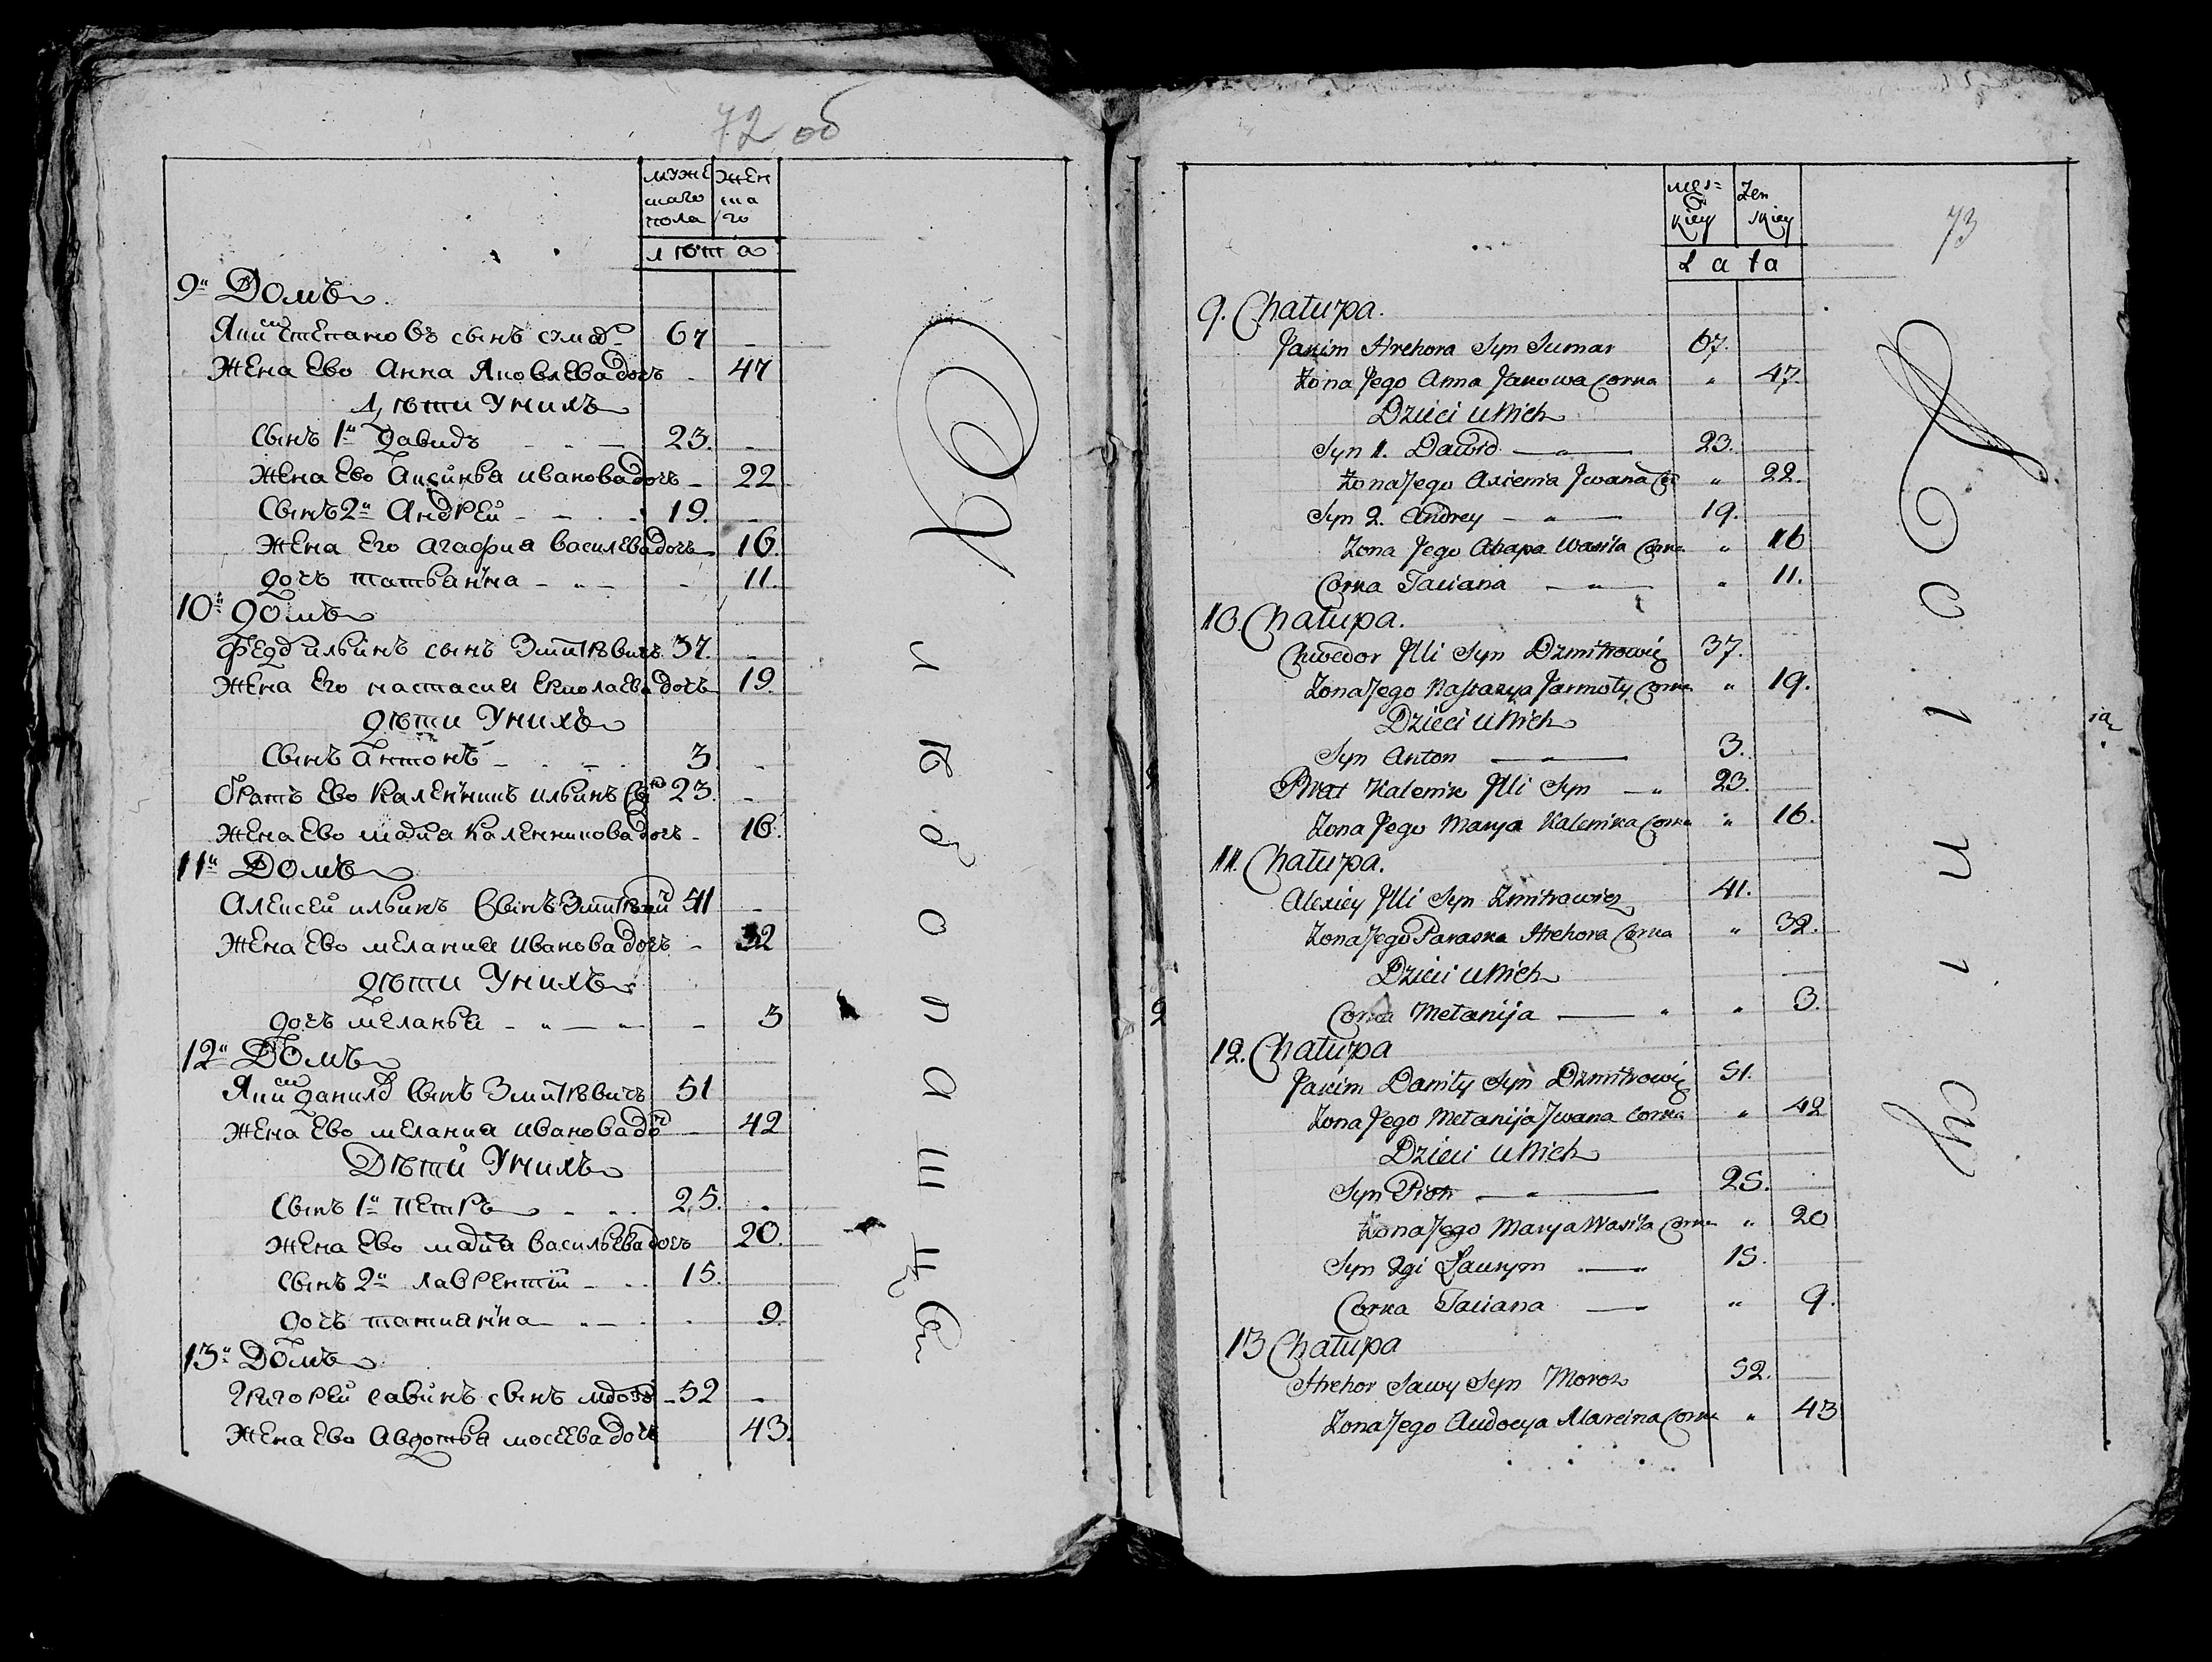 72 об
муже
скаго
пола
жен
ска
го
лѣта
9й Домъ
Яким Степановъ сынъ сумар 67
Жена Ево Анна Яковлева дочь 47
Дѣти У нихъ
Сынъ 1й Давидъ 23.
Жена Ево Аксинья Иванова дочь 22
Сынъ 2й Андрей 19.
Жена Его Агафия Василева дочь 16.
Дочь Татьянна 11.
10й Домъ
Федор Ильинъ сынъ Змитревичъ 37.
Жена Его Настасия Ермолаева дочь 19.
Дѣти У нихъ
Сынъ Антонъ 3.
Братъ Ево Каленникъ Ильинъ сын 23.
Жена Ево Мария Каленникова дочь 16.
11й Домъ
Алексей Ильинъ Сынъ 41
Жена Ево Мелания Иванова дочь 32
Дѣти У нихъ
Дочь Меланья 3
12й Домъ
Яким Данилов Сынъ Змитревичъ 51
Жена Ево Мелания Иванова доч 42
Дѣти У нихъ
Сынъ 1й Петръ 25.
Жена Ево Мария Васильева дочь 20.
Сынъ 2й Лаврентий 15.
Дочь Татианна 9.
13й Домъ
Григорей Савинъ сынъ мороз 52
Жена Ево Авдотья Мосеева дочь 43.
73
męs=
kiey
Zen
skiey
Lata
9. Chałupa.
Jakim Hrehora Syn Sumar 67.
Zona Jego Anna Jakowa Corka " 47.
Dzieci u Nich
Syn 1. Dawid — " — 23.
Zona Jego Axienia Jwana Cor " 22.
Syn 2. Andrey — " — 19.
Zona Jego Ahapa Wasila Corka " 16
Corka Taciana — " — " 11.
10. Chałupa.
Chwedor Jlli Syn Dzmitrowicz 37.
Zona Jego Nastazya Jarmoły Corka " 19.
Dzieci u Nich
Syn Anton — " — 3.
Brat Kalenik Jlli Syn — " 23.
Zona Jego Marya Kalenika Corka " 16.
11. Chałupa.
Alexiey Jlli Syn Zmitrowicz 41.
Zona Jego Paraska Hrehora Corka " 32.
Dzieci u Nich
Corka Mełanija — " " 3.
12. Chałupa
Jakim Daniły Syn Dzmitrowicz 51.
Zona Jego Mełanija Jwana Corka " 42
Dzieci u Nich
Syn Piotr — " — 25.
Zona Jego Marya Wasila Corka " 20
Syn 2gi Ławryn — " 15.
Corka Taciana — " 9.
13 Chałupa
Hrehor Sawy Syn Moroz 52.
Zona Jego Audocya Marcina Corka " 43